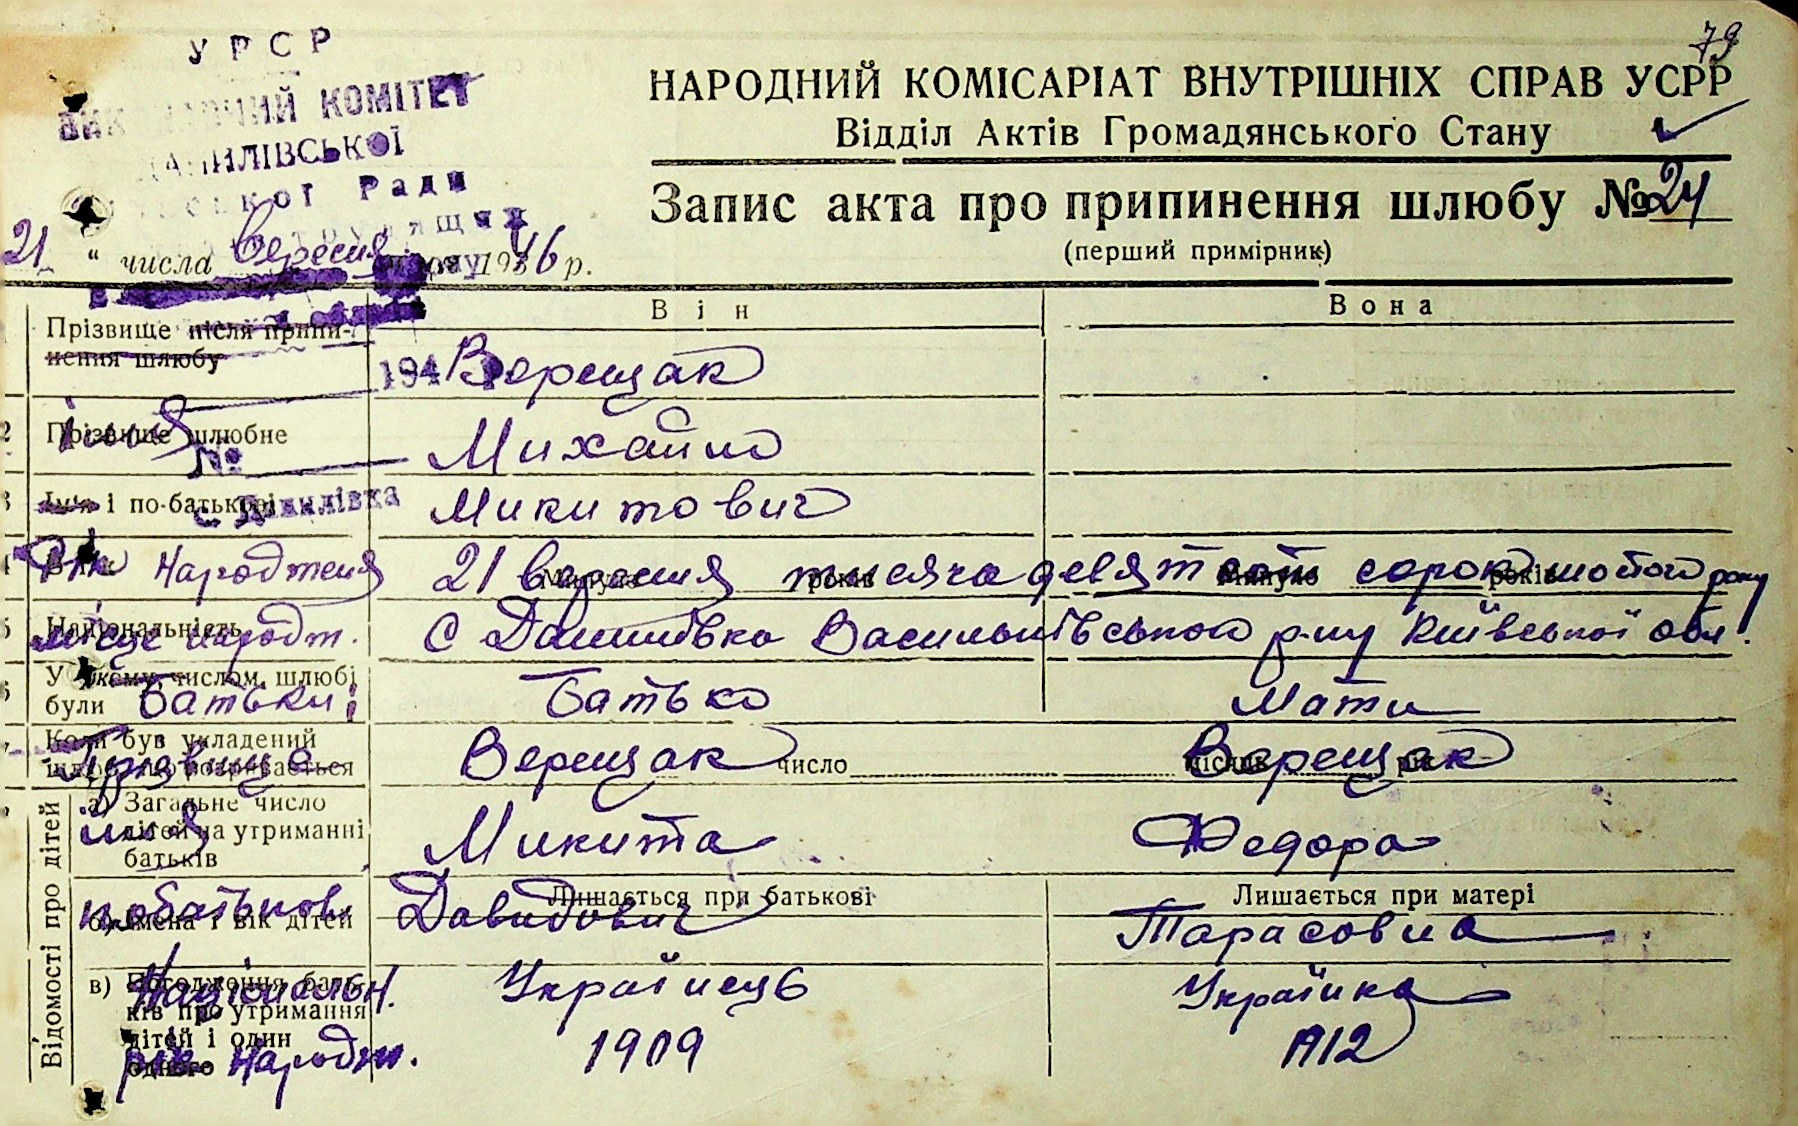 79
УРСР
ВИКОНАВЧИЙ КОМІТЕТ
ДАНИЛІВСЬКОЇ
Ради
НАРОДНИЙ КОМІСАРІАТ ВНУТРІШНІХ СПРАВ УСРР
Відділ Актів Громадянського Стану
Запис акта про припинення шлюбу № 24
(перший примірник)
21 " числа вересня 1946 р.
Він Вона
Прізвище після припинення шлюбу
194 Верещак
Прізвище шлюбне імя Михайло
№
Ім'я і по-батькові Микитович
с. Данилівка
Рік Народженя 21 вересня тисяча девятсот сорок шостого року
Минуло років Минуло років
Національність
місце народж. с Данилівка Васильківського р-ну Київської обл.
У якому числом, шлюбі
були Батьки: Батько Мати
Коли був укладений
шлюб, що розривається
Прізвище Верещак число місяць Верещак
Відомості про дітей
а) Загальне число
дітей на утриманні
батьків
імя Микита Федора
Лишається при батькові Лишається при матері
побатькові Давидович Тарасовна
б) Імена і вік дітей
в) Погодження бать-
ків про утримання
дітей і один
одного
Національн. Українець Українка
рік Народж. 1909 1912